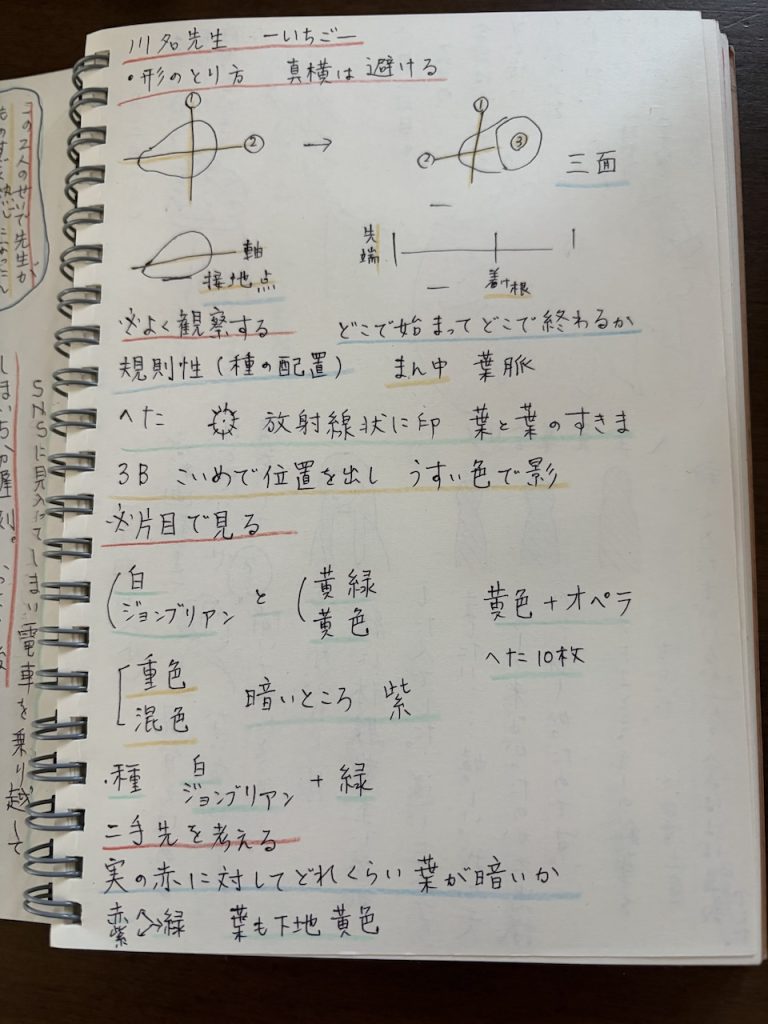 川名先生 ーいちごー
・形のとり方 真横は避ける
① ②
→
① ② ③
三面
軸
接地点
先端
着け根
※よく観察する どこで始まってどこで終わるか
規則性(種の配置) まん中 葉脈
へた 放射線状に印 葉と葉のすきま
3B こいめで位置を出し うすい色で影
※片目で見る
白
ジョンブリアン と 黄緑
黄色
黄色+オペラ
へた10枚
重色
混色 暗いところ 紫
・種 白
ジョンブリアン + 緑
二手先を考える
実の赤に対してどれくらい葉が暗いか
赤 紫 緑 葉も下地黄色
この2人のせいで先生が
SNSに見入ってしまい電車を乗り越して